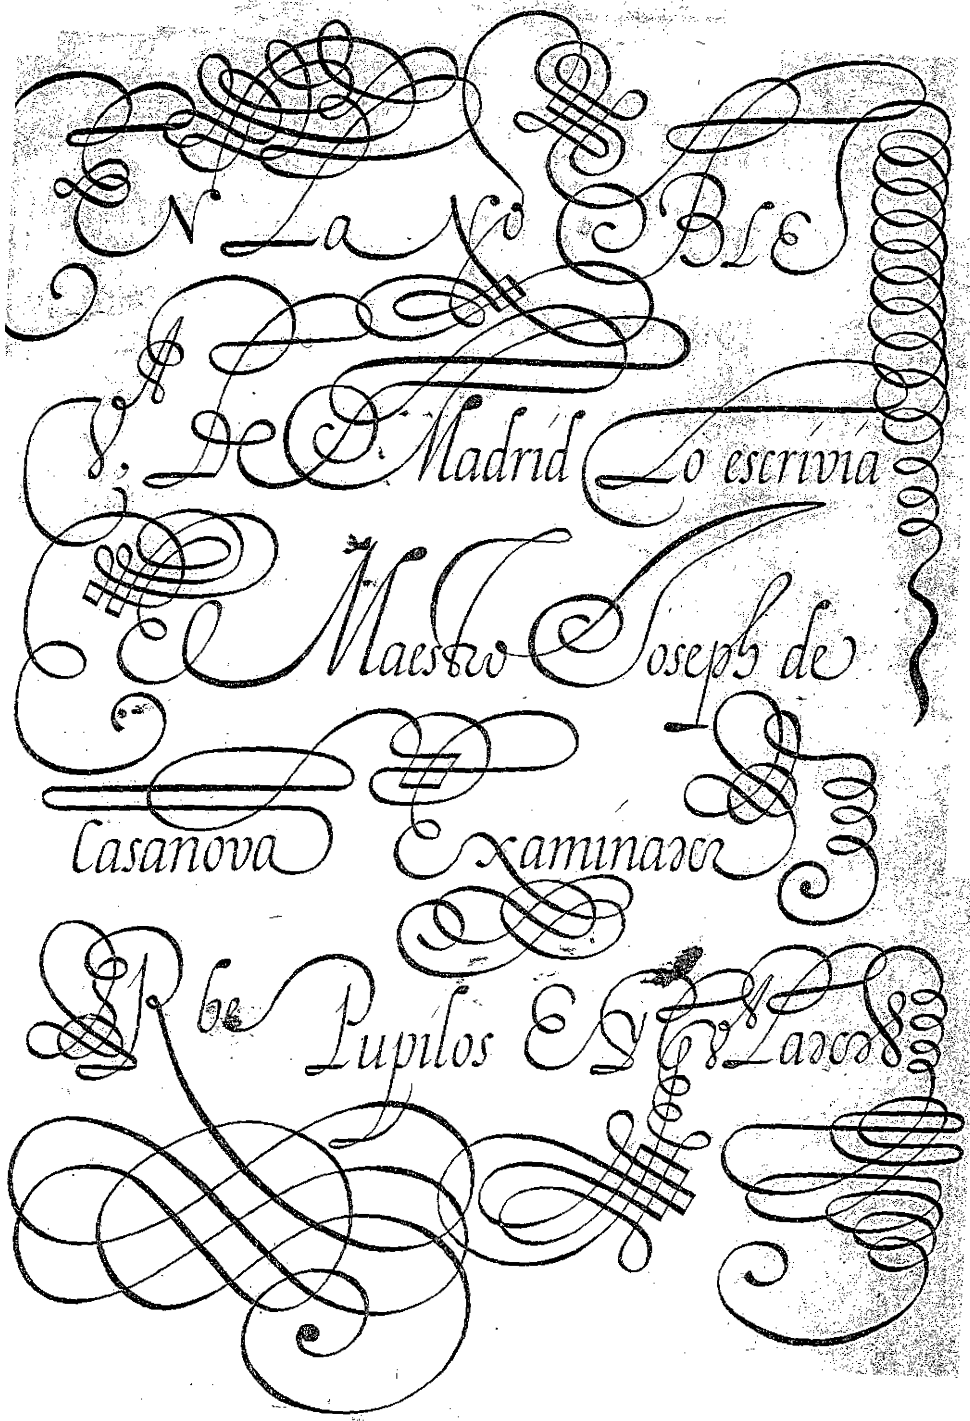 EN La NoBLE
V,A DE Madrid Lo escrivia
El Maestro Joseph de
Casanova Examinador
Rbe Pupilos